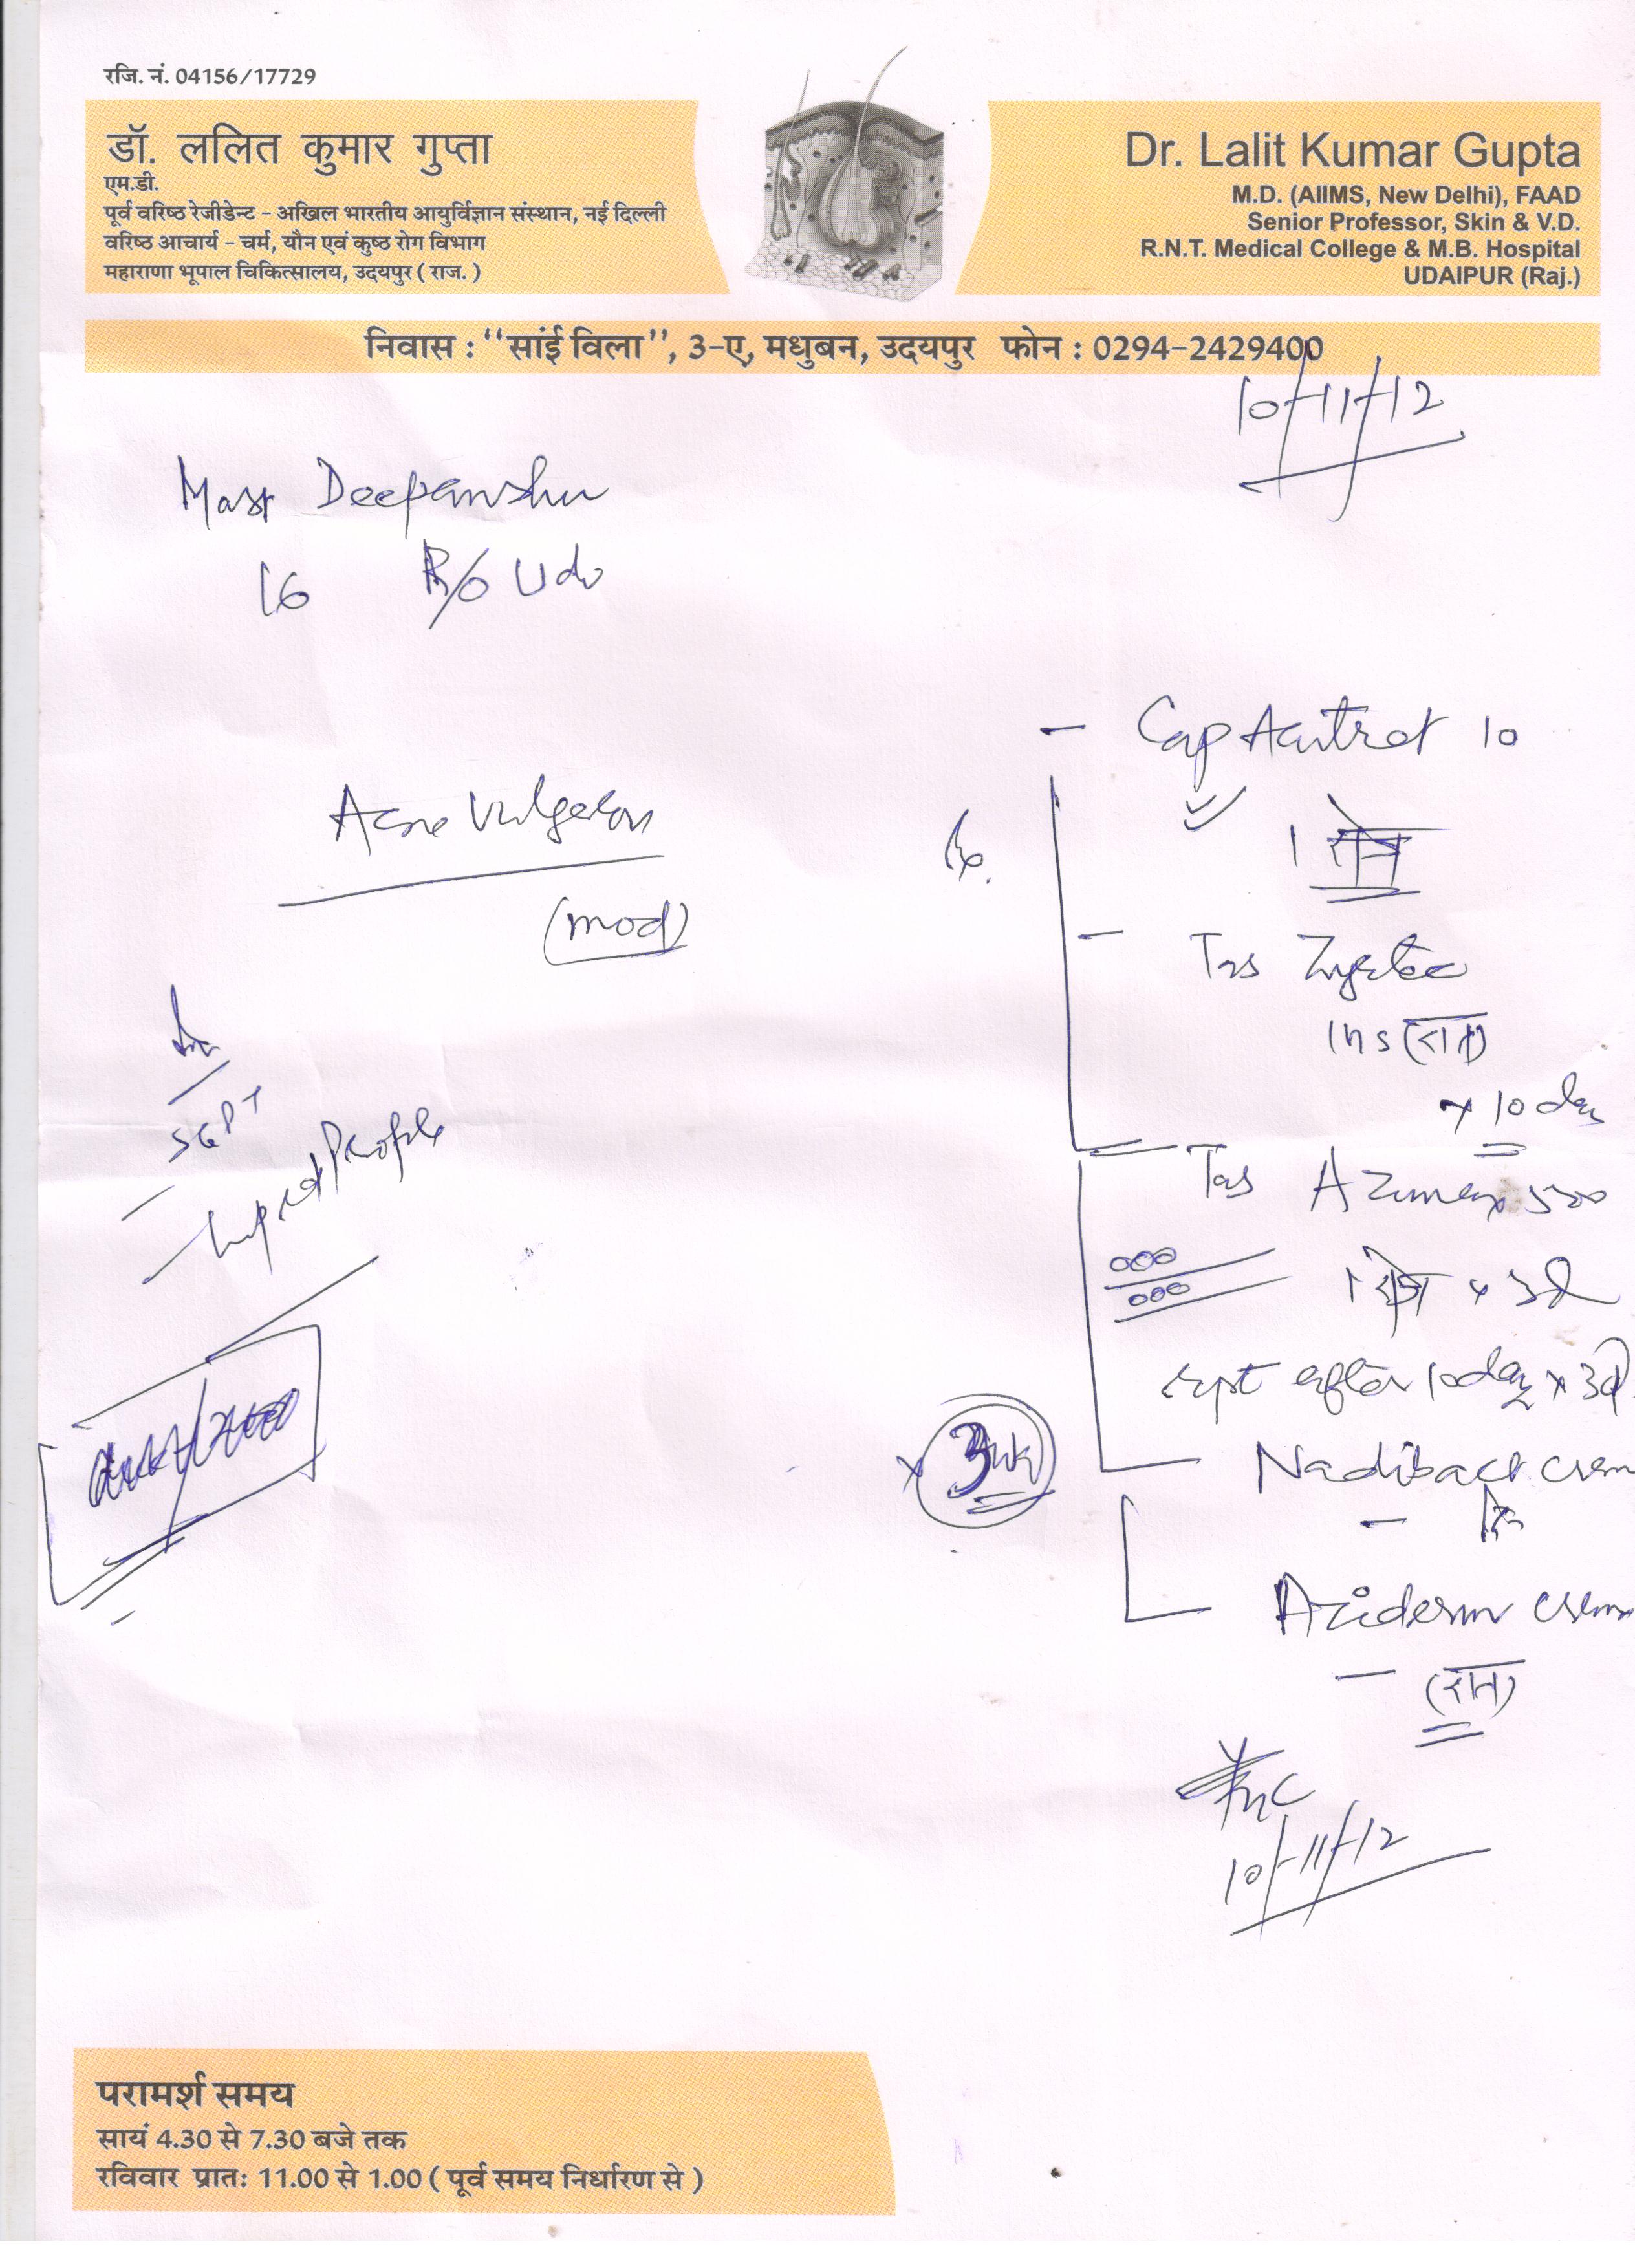 रजि. नं. 04156/17729
डॉ. ललित कुमार गुप्ता
एम.डी.
पूर्व वरिष्ठ रेजीडेन्ट - अखिल भारतीय आयुर्विज्ञान संस्थान, नई दिल्ली
वरिष्ठ आचार्य - चर्म, यौन एवं कुष्ठ रोग विभाग
महाराणा भूपाल चिकित्सालय, उदयपुर ( राज. )
Dr. Lalit Kumar Gupta
M.D. (AIIMS, New Delhi), FAAD
Senior Professor, Skin & V.D.
R.N.T. Medical College & M.B. Hospital
UDAIPUR (Raj.)
निवास : “सांई विला”, 3-ए, मधुबन, उदयपुर फोन : 0294-2429400
10/11/12
Mast Deepanshu
16 R/o Ud
Acne Vulgaris
(mod)
SGPT
Lipid Profile
- Cap Acutret 10
1 रोज
- Tab Zyrtec
1 hs (रात)
x 10 day
Tab Azimax 500
1 रोज x 3d
rept after 10 day x 3d
x 3wk
Nadibact crem
Aziderm crem
- (रात)
10/11/12
परामर्श समय
सायं 4.30 से 7.30 बजे तक
रविवार प्रातः 11.00 से 1.00 ( पूर्व समय निर्धारण से )